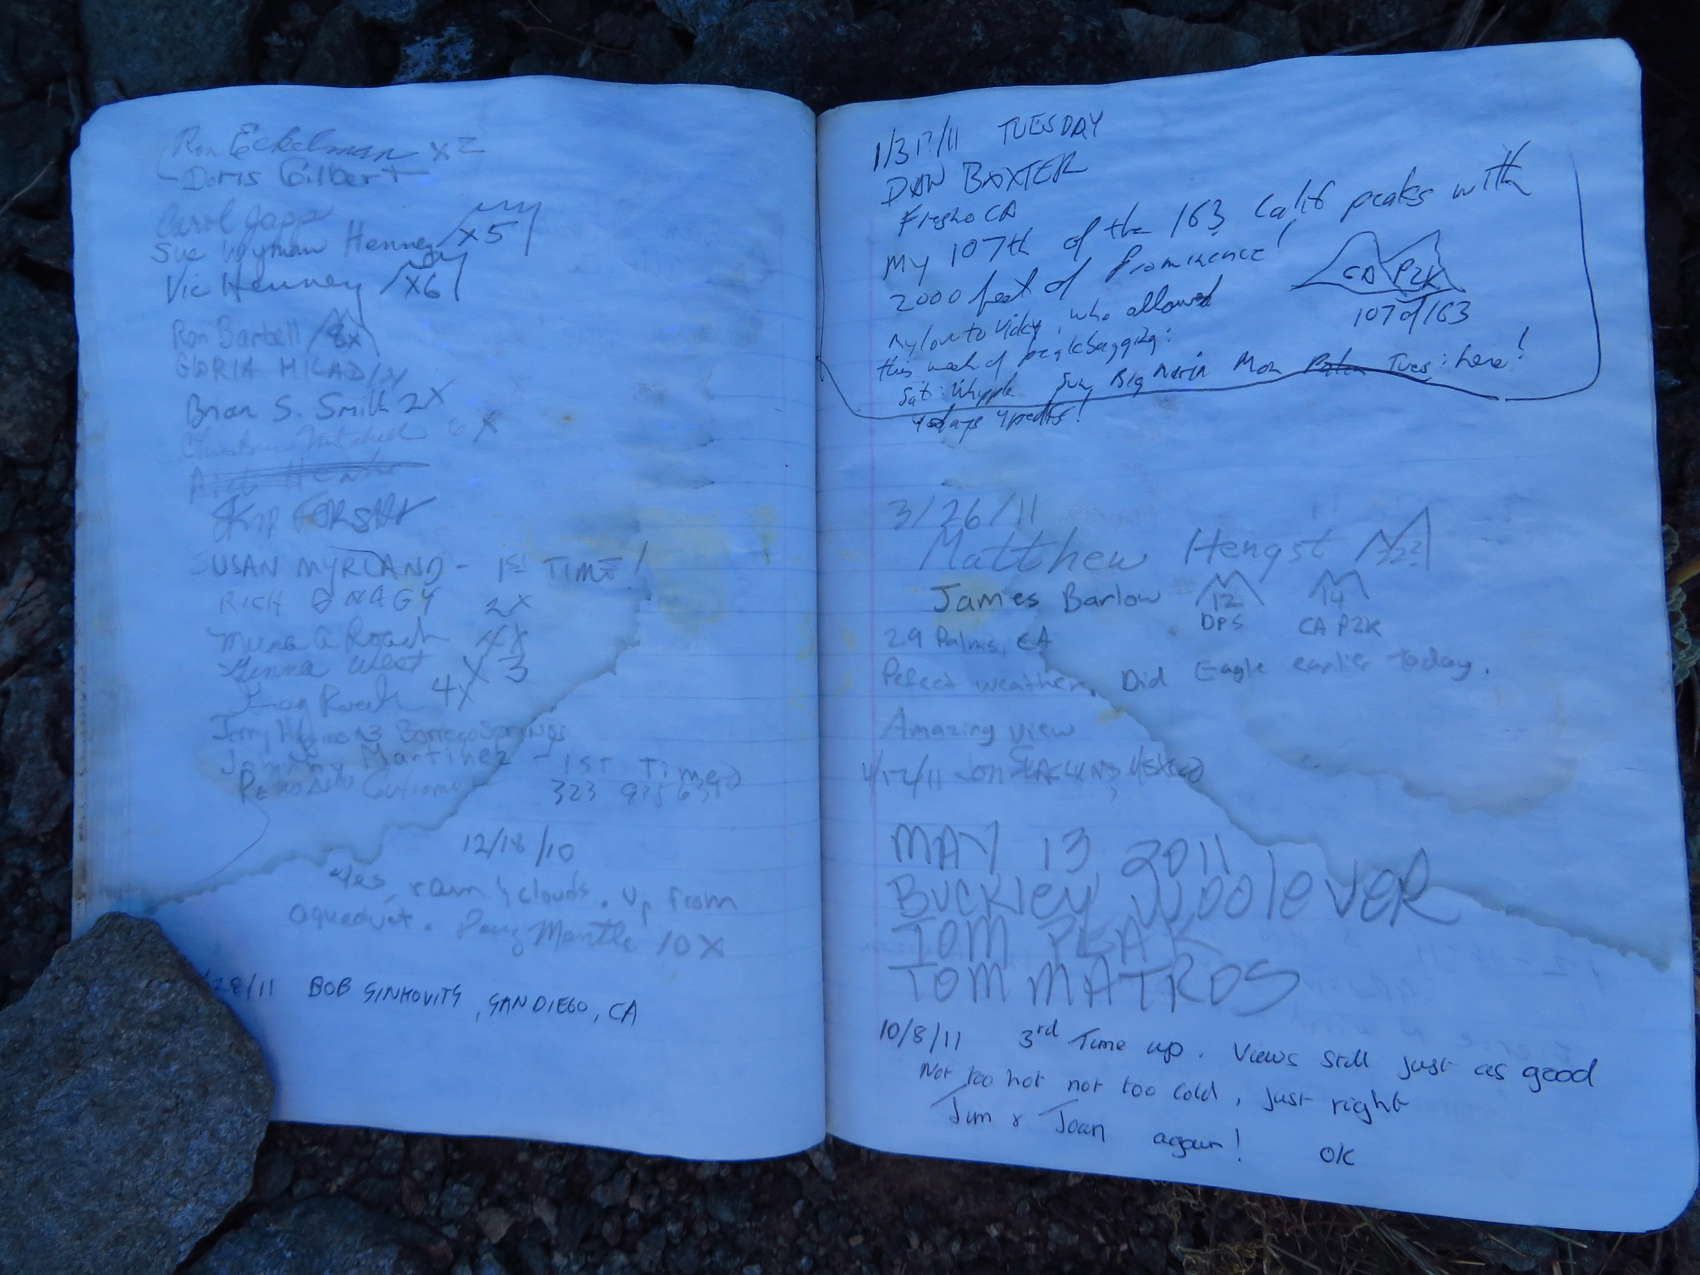 Ron Eckelman x2
Doris Gilbert
Carol Japp
Sue Wyman Henney x5
Vic Henney x6
Ron Bartell 8x
GLORIA MILADIN
Brian S. Smith 2X
6 X
SUSAN MYRLAND - 1ST TIME!
RICH NAGY 2X
Roach 4X
West X 3
Roach 4X
Jerry Borrego Springs
Johnny Martinez - 1ST Timer
323
12/18/10
Yes, rain & clouds. Up from
aqueduct. Doug Mantle 10X
28/11 BOB SINKOVITS, SAN DIEGO, CA
TUESDAY
DAN BAXTER
Fresno CA
My 107th of the 163 Calif peaks with
2000 feet of Prominence!
CA P2K
107 of 163
My love to Vicky, who allowed
this week of peakbagging:
Sat: Whipple Sun Big Maria Mon Tues: here!
4 days 4 peaks!
3/26/11
Matthew Hengst
James Barlow 12 14
DPS CA P2K
29 Palms, CA
Pefect weather. Did Eagle earlier today.
Amazing view
MAY 13 2011
BUCKLEY WOOLEVER
TOM PEAK
TOM MATROS
10/8/11 3rd Time up. Views still just as good
Not too hot not too cold, just right
Jim & Joan again! OK